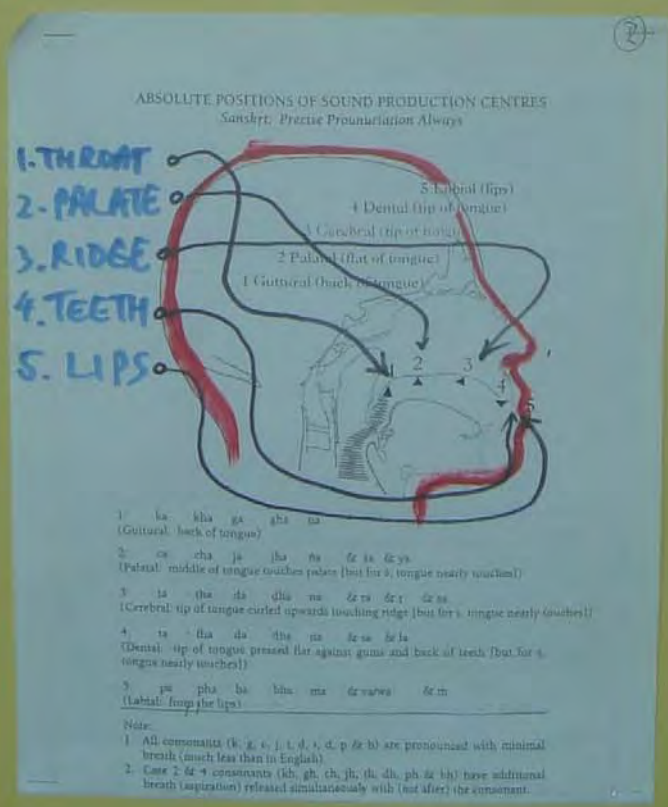 2
ABSOLUTE POSITIONS OF SOUND PRODUCTION CENTRES
Sanskrt: Precise Prounuriation Always
1. THROAT
2. PALATE
3. RIDGE
4. TEETH
5. LIPS
5 Labial (lips)
4 Dental (tip of tongue)
3 Cerebral (tip of tongue
2 Palatal (flat of tongue)
1 Guttural (back of tongue)
1 2 3 4 5
1: ka kha ga gha na
(Guttural: back of tongue)
2: ca cha ja jha ña & sa & ya
(Palatal: middle of tongue touches palate [but for s, tongue nearly touches])
3: ta tha da dha na & ra & r & sa
(Cerebral: tip of tongue curled upwards touching ridge [but for s, tongue nearly touches])
4: ta tha da dha na & sa & la
(Dental: tip of tongue pressed flat against gums and back of teeth [but for s,
tongue nearly touches])
5: pa pha ba bha ma & va/wa & m
(Labial: from the lips)
Note:
1. All consonants (k, g, c, j, t, d, t, d, p & b) are pronounced with minimal
breath (much less than in English).
2. Case 2 & 4 consonants (kh, gh, ch, jh, th, dh, ph & bh) have additional
breath (aspiration) released simultaneously with (not after) the consonant.